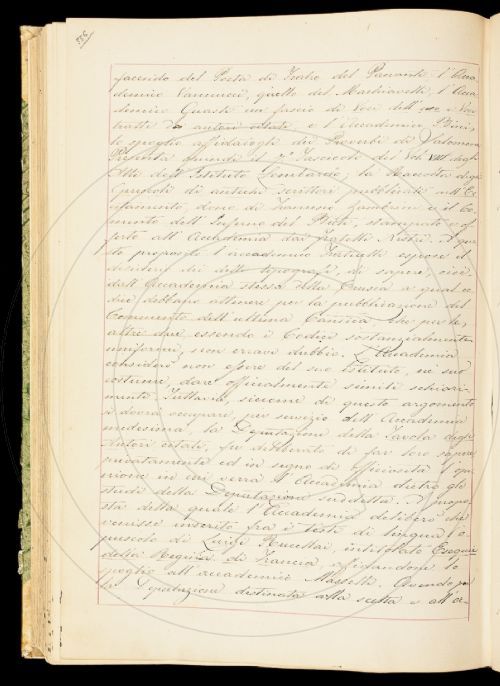 facendo del Poeta di Teatro del Pananti; l'Acca-
demico Vannucci, quello del Machiavelli; l'Acca-
demico Guasti un fascio di Voci dell'uso e Voci
tratte da autori citati; e l'Accademico Bini,
lo spoglio affidatogli dei Proverbi di Salomone.
Presenta quindi il fascicolo del Vol. VIII degli
Atti dell'Istituto Lombardo; la Raccolta degli
Opuscoli di antichi scrittori pubblicati
dono di Francesco Zambrini; e il Co-
mento dell'Inferno del Buti, stampato e of-
ferto all'Accademia dai fratelli Nistri. A que-
sto proposito l'accademico espose il
desiderio dei detti tipografi, di sapere, cioè
dall'Accademia stessa della Crusca a qual co-
dice debbano attenersi per la pubblicazione del
Commento dell'ultima Cantica, che per le
altre due essendo i Codici sostanzialmente
uniformi, non eravi dubbio. L'Accademia
considerò non essere del suo Istituto, nè suo
costume, dare officialmente simili schiari-
menti. Tuttavia, siccome di questo argomento
si dovrà occupare, per servizio dell'Accademia
medesima, la Deputazione della Tavola degli
Autori citati, fu deliberato di far loro sapere
privatamente ed in segno di officiosità l'opi-
nione in cui verrà l'Accademia dietro gli
studi della Deputazione suddetta. A propo-
sta della quale l'Accademia deliberò che
venisse inserito fra i testi di lingua l'o-
puscolo di Luigi Rucellai, intitolato Esequie
della Regina di Francia, affidandone lo
spoglio all'accademico Masselli. Quando poi
la Deputazione destinata alla scelta e all'e-